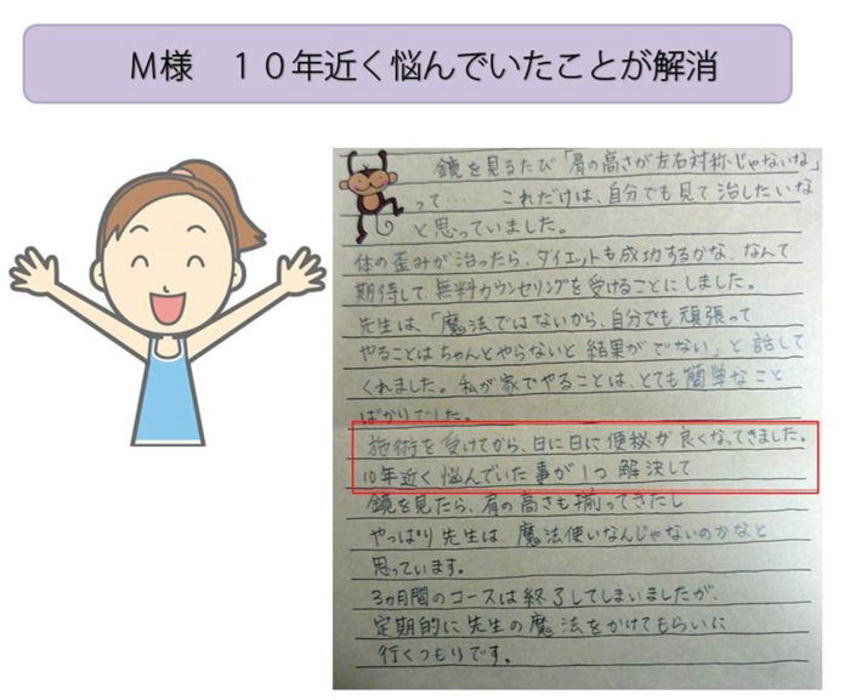 M様　１０年近く悩んでいたことが解消
鏡を見るたび「肩の高さが左右対称じゃないな」
って… これだけは、自分でも見て治したいな
と思っていました。
体の歪みが治ったら、ダイエットも成功するかな、なんて
期待して無料カウンセリングを受けることにしました。
先生は「魔法ではないから、自分でも頑張って
やることはちゃんとやらないと結果がでない」と話して
くれました。私が家でやることは、とても簡単なこと
ばかりでした。
施術を受けてから、日に日に便秘が良くなってきました。
10年近く悩んでいた事が1つ解決して
鏡を見たら、肩の高さも揃ってきたし
やっぱり先生は、魔法使いなんじゃないのかなと
思っています。
3ヵ月間のコースは終了してしまいましたが、
定期的に先生の魔法をかけてもらいに
行くつもりです。